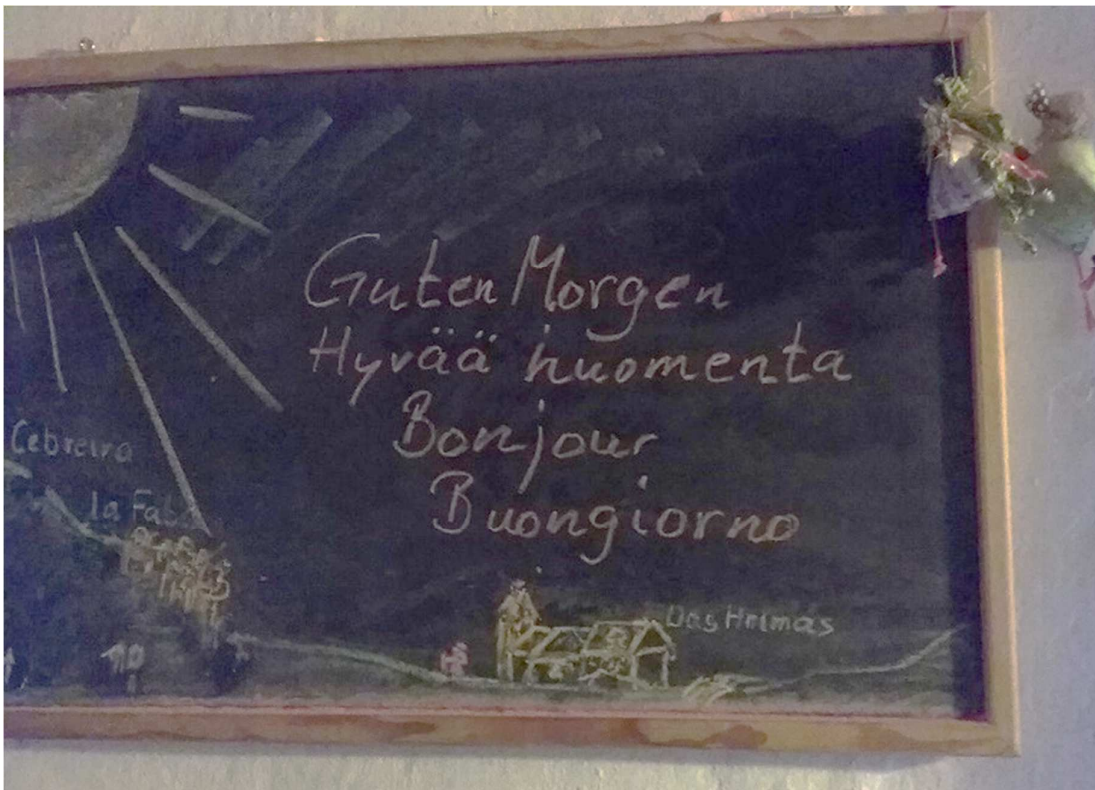 Guten Morgen
Hyvää huomenta
Bonjour
Buongiorno
Cebreiro
la Faba